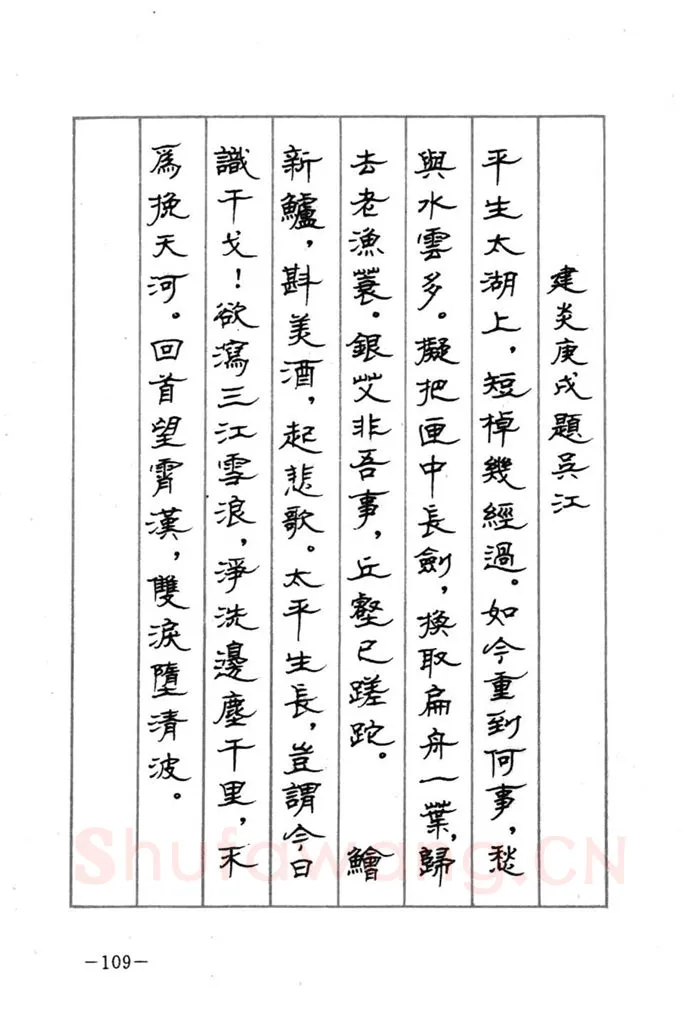 建炎庚戌題吳江
平生太湖上，短棹幾經過。如今重到何事，愁
與水雲多。擬把匣中長劍，換取扁舟一葉，歸
去老漁蓑。銀艾非吾事，丘壑已蹉跎。　鱠
新鱸，斟美酒，起悲歌。太平生長，豈謂今日
識干戈！欲瀉三江雪浪，淨洗邊塵千里，不
爲挽天河。回首望霄漢，雙淚墮清波。
Shufawang.CN
—109—